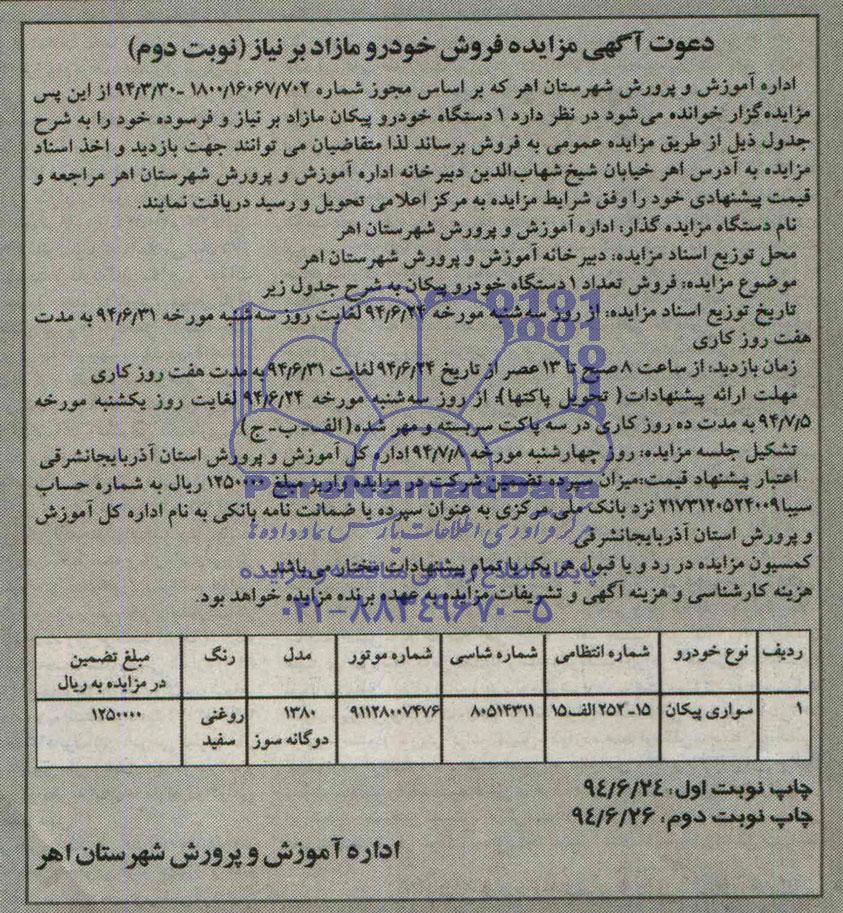 دعوت آگهی مزایده فروش خودرو مازاد بر نیاز (نوبت دوم)
اداره آموزش و پرورش شهرستان اهر که بر اساس مجوز شماره ۱۸۰۰/۱۶۰۶۷/۷۰۲ -۹۴/۳/۳۰ از این پس
مزایده‌گزار خوانده می‌شود در نظر دارد ۱ دستگاه خودرو پیکان مازاد بر نیاز و فرسوده خود را به شرح
جدول ذیل از طریق مزایده عمومی به فروش برساند لذا متقاضیان می توانند جهت بازدید و اخذ اسناد
مزایده به آدرس اهر خیابان شیخ شهاب‌الدین دبیرخانه اداره آموزش و پرورش شهرستان اهر مراجعه و
قیمت پیشنهادی خود را وفق شرایط مزایده به مرکز اعلامی تحویل و رسید دریافت نمایند.
نام دستگاه مزایده گذار: اداره آموزش و پرورش شهرستان اهر
محل توزیع اسناد مزایده: دبیرخانه آموزش و پرورش شهرستان اهر
موضوع مزایده: فروش تعداد ۱ دستگاه خودرو پیکان به شرح جدول زیر
تاریخ توزیع اسناد مزایده: از روز سه‌شنبه مورخه ۹۴/۶/۲۴ لغایت روز سه‌شنبه مورخه ۹۴/۶/۳۱ به مدت
هفت روز کاری
زمان بازدید: از ساعت ۸ صبح تا ۱۳ عصر از تاریخ ۹۴/۶/۲۴ لغایت ۹۴/۶/۳۱ به مدت هفت روز کاری
مهلت ارائه پیشنهادات( تحویل پاکتها): از روز سه‌شنبه مورخه ۹۴/۶/۲۴ لغایت روز یکشنبه مورخه
۹۴/۷/۵ به مدت ده روز کاری در سه پاکت سربسته و مهر شده ( الف- ب- ج )
تشکیل جلسه مزایده: روز چهارشنبه مورخه ۹۴/۷/۸ اداره کل آموزش و پرورش استان آذربایجانشرقی
اعتبار پیشنهاد قیمت:میزان سپرده تضمین شرکت در مزایده واریز مبلغ ۱۲۵۰۰۰۰ ریال به شماره حساب
سیبا ۲۱۷۳۱۲۰۵۲۴۰۰۹ نزد بانک ملی مرکزی به عنوان سپرده یا ضمانت نامه بانکی به نام اداره کل آموزش
و پرورش استان آذربایجانشرقی
کمسیون مزایده در رد و یا قبول هر یک یا تمام پیشنهادات مختار می باشد
هزینه کارشناسی و هزینه آگهی و تشریفات مزایده به عهده برنده مزایده خواهد بود.
ParsNamadData
پایگاه اطلاع رسانی مناقصه و مزایده
۰۲۱-۸۸۳۴۹۶۷۰-۵
ردیف نوع خودرو شماره انتظامی شماره شاسی شماره موتور مدل رنگ مبلغ تضمین
در مزایده به ریال
۱ سواری پیکان ۱۵-۲۵۲ الف ۱۵ ۸۰۵۱۴۳۱۱ ۹۱۱۲۸۰۰۷۴۷۶ ۱۳۸۰ روغنی ۱۲۵۰۰۰۰
دوگانه سوز سفید
چاپ نوبت اول: ۹۴/۶/۲۴
چاپ نوبت دوم: ۹۴/۶/۲۶
اداره آموزش و پرورش شهرستان اهر